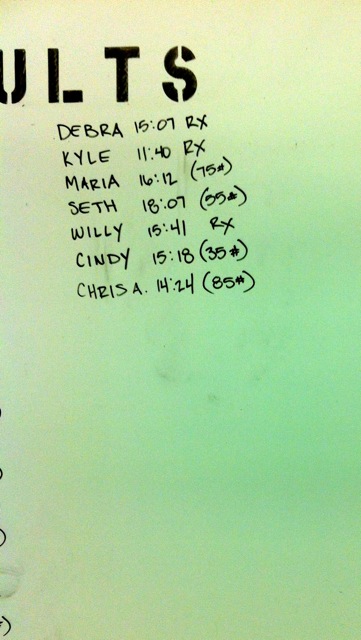 ULTS
DEBRA 15:07 RX
KYLE 11:40 RX
MARIA 16:12 (75#)
SETH 18:07 (55#)
WILLY 15:41 RX
CINDY 15:18 (35#)
CHRIS A. 14:24 (85#)